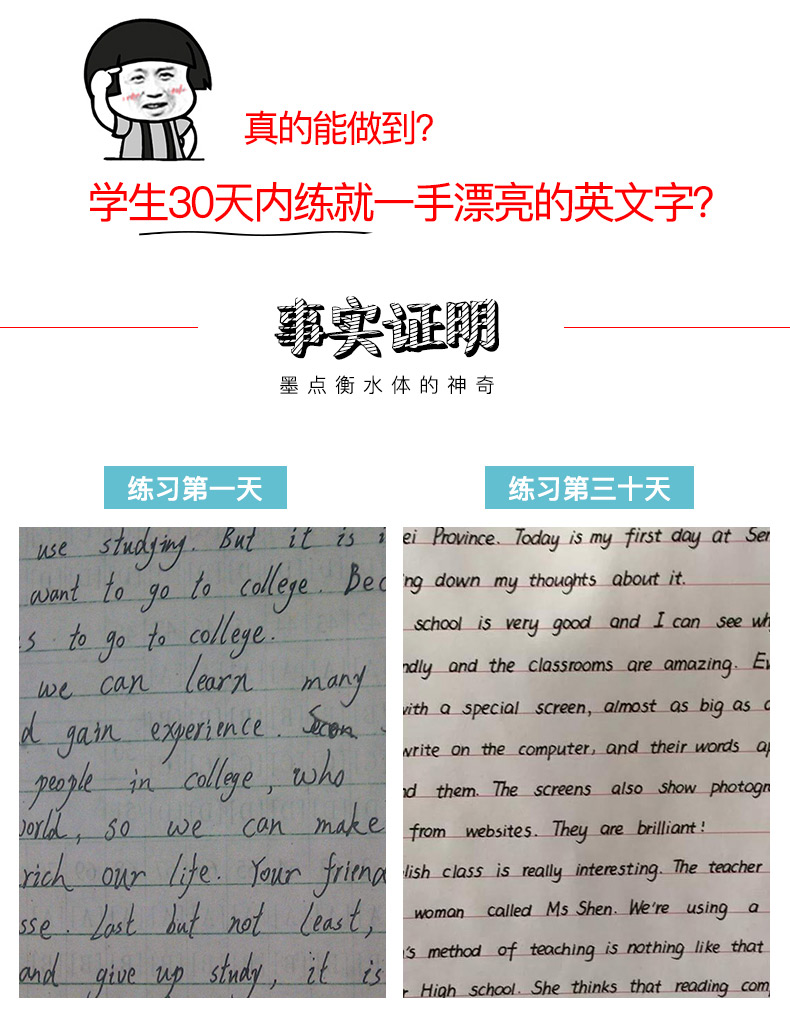 真的能做到?
学生30天内练就一手漂亮的英文字?
事实证明
墨点衡水体的神奇
练习第一天
use studying. But it is
want to go to college. Bec
s to go to college.
we can learn many
d gain experience.
people in college, who
orld, so we can make
rich our life. Your friend
sse. Last but not least,
and give up study, it is
练习第三十天
ei Province. Today is my first day at Sen
ng down my thoughts about it.
school is very good and I can see wh
ndly and the classrooms are amazing. Ev
with a special screen, almost as big as a
write on the computer, and their words ap
nd them. The screens also show photogr
from websites. They are brilliant!
lish class is really interesting. The teacher
woman called Ms Shen. We're using a
's method of teaching is nothing like that
r High school. She thinks that reading com